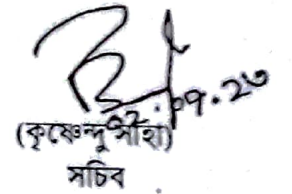 ১২.০৭.২৩
(কৃষ্ণেন্দু সাহা)
সচিব